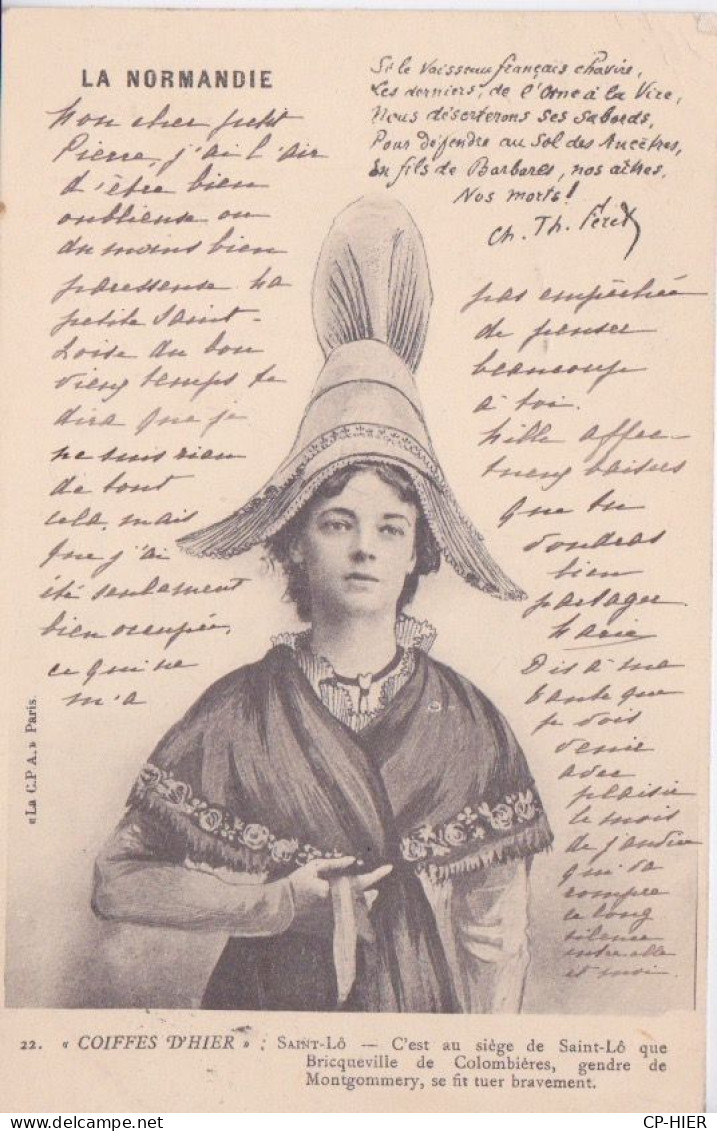 LA NORMANDIE
Si le Vaisseau français chavire,
Les derniers, de l'Orne à la Vire,
Nous déserterons ses sabords,
Pour défendre au Sol des Ancêtres,
En fils de Barbares, nos aîtres,
Nos morts!
Ch. Th. Féret
Mon cher petit
Pierre, j'ai l'air
d'être bien
oublieuse ou
du moins bien
paresseuse ta
petite Saint-
Loise du bon
vieux temps te
dira que je
ne suis rien
de tout
cela, mais
que j'ai
été seulement
bien occupée,
ce qui ne
m'a
pas empêchée
de penser
beaucoup
à toi.
Mille affec-
tueux baisers
que tu
voudras
bien
partager.
Marie
Dis à ma
tante que
je vois
venir
avec
plaisir
le mois
de janvier
qui va
rompre
le long
silence
entre elle
et moi.
«La C.P.A.» Paris
22. « COIFFES D'HIER » : SAINT-LÔ — C'est au siège de Saint-Lô que
Bricqueville de Colombières, gendre de
Montgommery, se fit tuer bravement.
CP-HIER